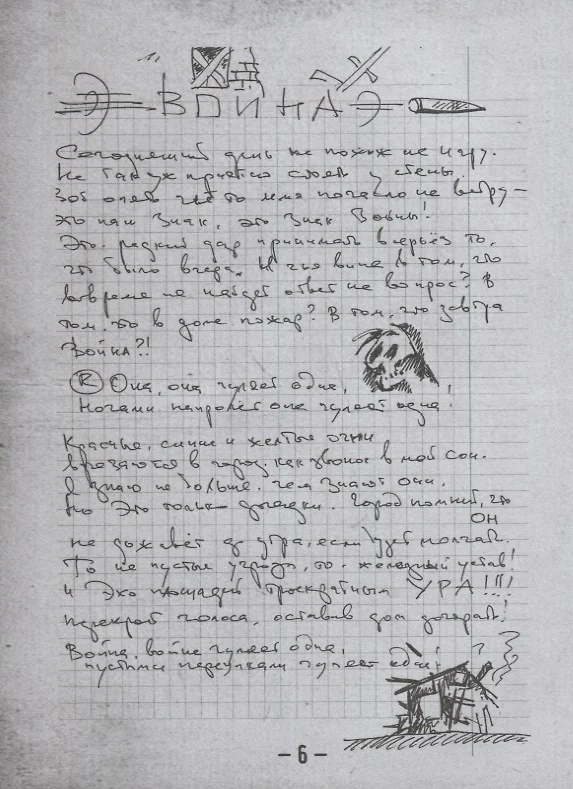 ВОЙНА
Сегодняшний день не похож на игру.
Не так уж приятно стоять у стены.
Вот опять что-то меня по на ветру —
это наш Знак, это Знак Войны!
Это редкий дар принимать всерьёз то,
что было вчера. И чья вина в том, что
вовремя не найдёт ответ на вопрос? В
том, что в доме пожар? В том, что завтра
Война?!
(R) Она, она гуляет одна,
Ночами напролёт она гуляет одна!
Красные, синие и жёлтые огни
врезаются в город, как звонок в мой сон.
Я знаю не больше, чем знают они.
Но это только догадки. Город помнит, что
ОН
не доживёт до утра, если будет молчать.
То не пустые угрозы, то - железный устав!
И Эхо площадей троекратным УРА!!!!
перекроет голоса, оставив дом догорать!
Война, война гуляет одна,
пустыми переулками гуляет одна!
– 6 –